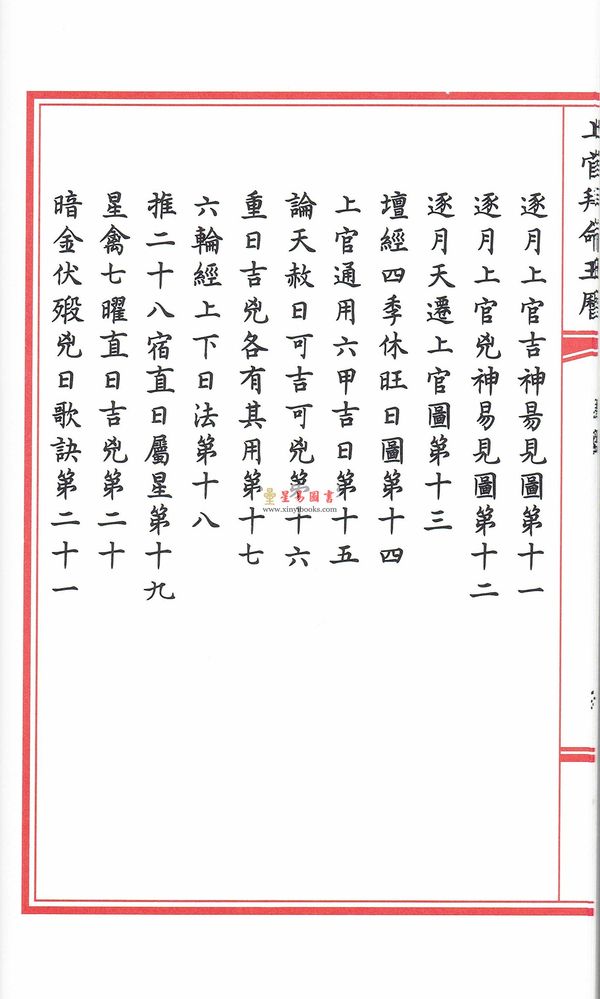 上官拜命玉曆
逐月上官吉神易見圖第十一
逐月上官兇神易見圖第十二
逐月天遷上官圖第十三
壇經四季休旺日圖第十四
上官通用六甲吉日第十五
論天赦日可吉可兇第十六
重日吉兇各有其用第十七
六輪經上下日法第十八
推二十八宿直日屬星第十九
星禽七曜直日吉兇第二十
暗金伏殺兇日歌訣第二十一
星易圖書
www.xinyibooks.com